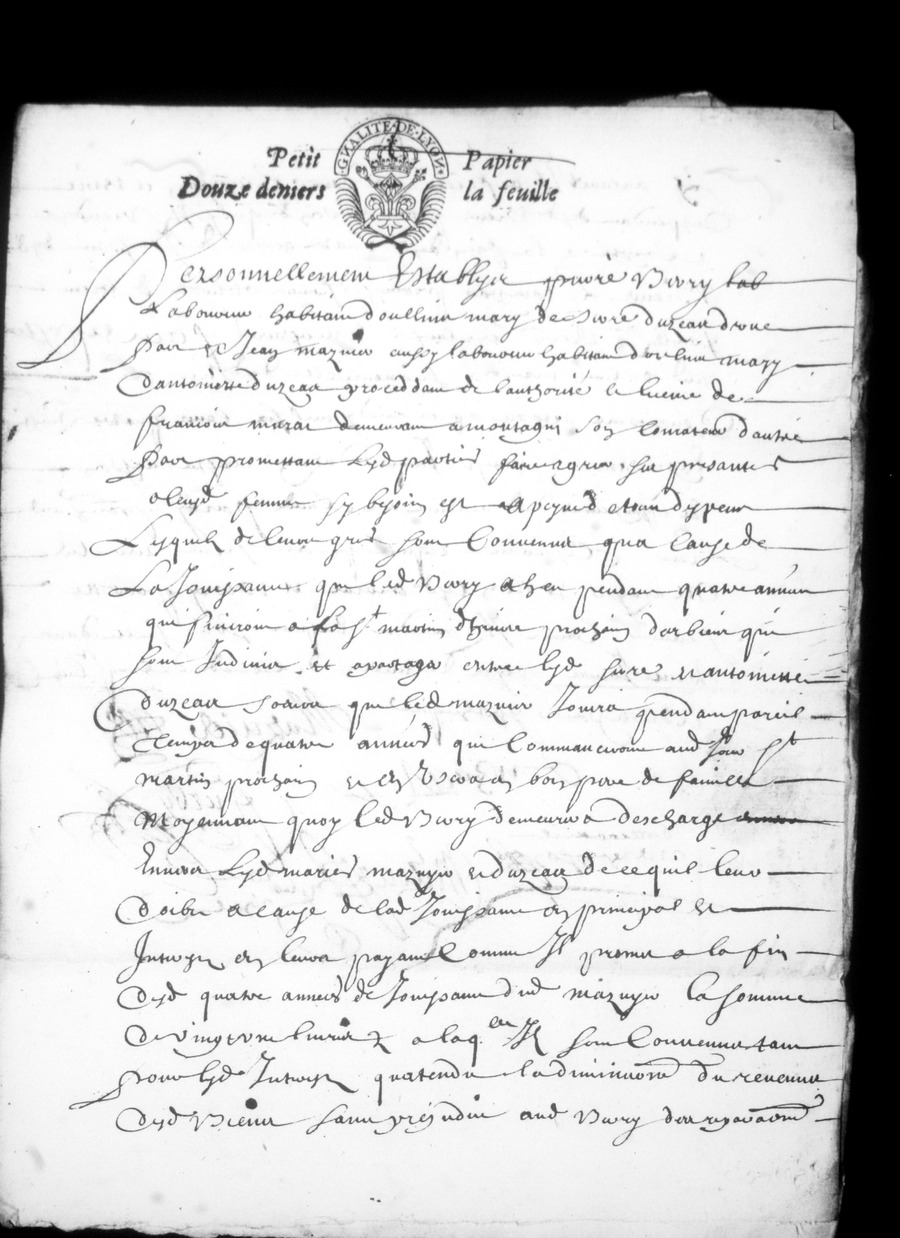 GNALITE·DE·LYON
Petit Papier
Douze deniers la feuille
Personnellement Establys pierre Vivry lab
Laboureur habitant doullins mary de duzeau dune
part et Jean mazuier aussy laboureur habitant doulins mary
dantoinette duzeau proceddant de lauthorité et de
francois demeurant a montagni son dautre
part promettant lesd parties faire agreer ses presantes
a leurs femmes sy besoin est a peyne de tous despens
Lesquels de leurs gres sont Convenus qua cause de
La Jouissance que led Vivry a heu pendant quatre annees
qui finiront a la st martin dhiver prochain des biens qui
sont Indivis et a partager entre lesd et antoinette
duzeau soeurs que led mazuier Jouira pendant pareil
temps de quatre années qui Commanceront aud Jour st
martin prochain et en Usera en bon pere de famille
Moyennant quoy led Vivry demeurera descharge
Envers lesd maries mazuyer et duzeau de ce quil leur
doibt a cause de lad Jouissance en principal et
Interest en leur payant comme Il promet a la fin
desd quatre années de Jouissance dud mazuyer la somme
de vingt une livres a laqelle Ils sont Convenus tant
pour lesd Interest quatendu la diminution du revenu
desd biens sans prejudice aud Vivry des reparaons